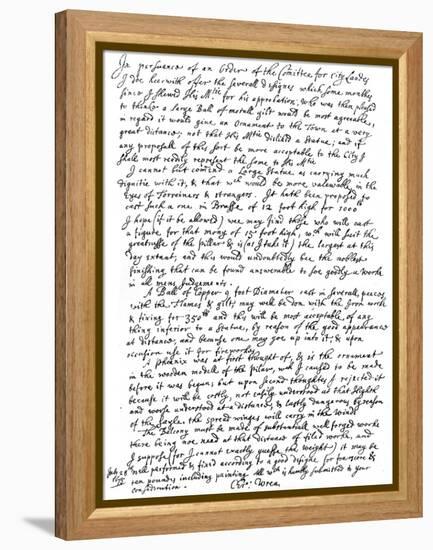 In persuance of an Order of the Comittee for City Landes
I doe heerwith offer the severall designes which some monthes
since I shewed His Mtie for his approbation, who was then pleased
to thinke a large Ball of metall gilt would be most agreeable,
in regard it would give an Ornament to the Town at a very
great distance; not that His Mtie disliked a Statue; and if
any proposall of this sort be more acceptable to the City I
shall most readily represent the same to His Mtie
I cannot but comend a Large Statue as carrying much
dignitie with it, & that wch would be more valewable in the
Eyes of Forreiners & strangers. It hath been proposed to
cast such a one in Brasse of 12 foot high for 1000lb
I hope (if it be allowed) wee may find those who will cast
a figure for that mony of 15 foot high, wch will suit the
greatnesse of the pillar & is (as I take it) the largest at this
day extant; and this would undoubtedly bee the noblest
finishing that can be found answerable to soe goodly a worke
in all mens Judgements.
A Ball of Copper 9 foot Diameter cast in severall peeces
with the Flames & gilt, may well be don with the Iron work
& fixing for 350lb and this will be most acceptable of any
thing inferior to a Statue, by reason of the good appearance
at distance, and because one may goe up into it, & upon
occasion use it for fireworks.
A phoenix was at first thought of, & is the ornament
in the wooden modell of the pillar, wch I caused to be made
before it was begun; but upon second thoughtes I rejected it
because it will be costly, not easily understood at that Highth
and worse understood at a distance, & lastly dangerous by reason
of the sayle, the spread winges will carry in the winde
The Balcony must be made of substantiall well forged worke
there being noe need at that distance of filed worke, and
I suppose (for I cannot exactly guesse the weight) it may be
well performed & fixed according to a good designe for fourscore &
ten poundes including painting All wch is humbly submitted to your
consideration.
July 28
Chr: Wren.